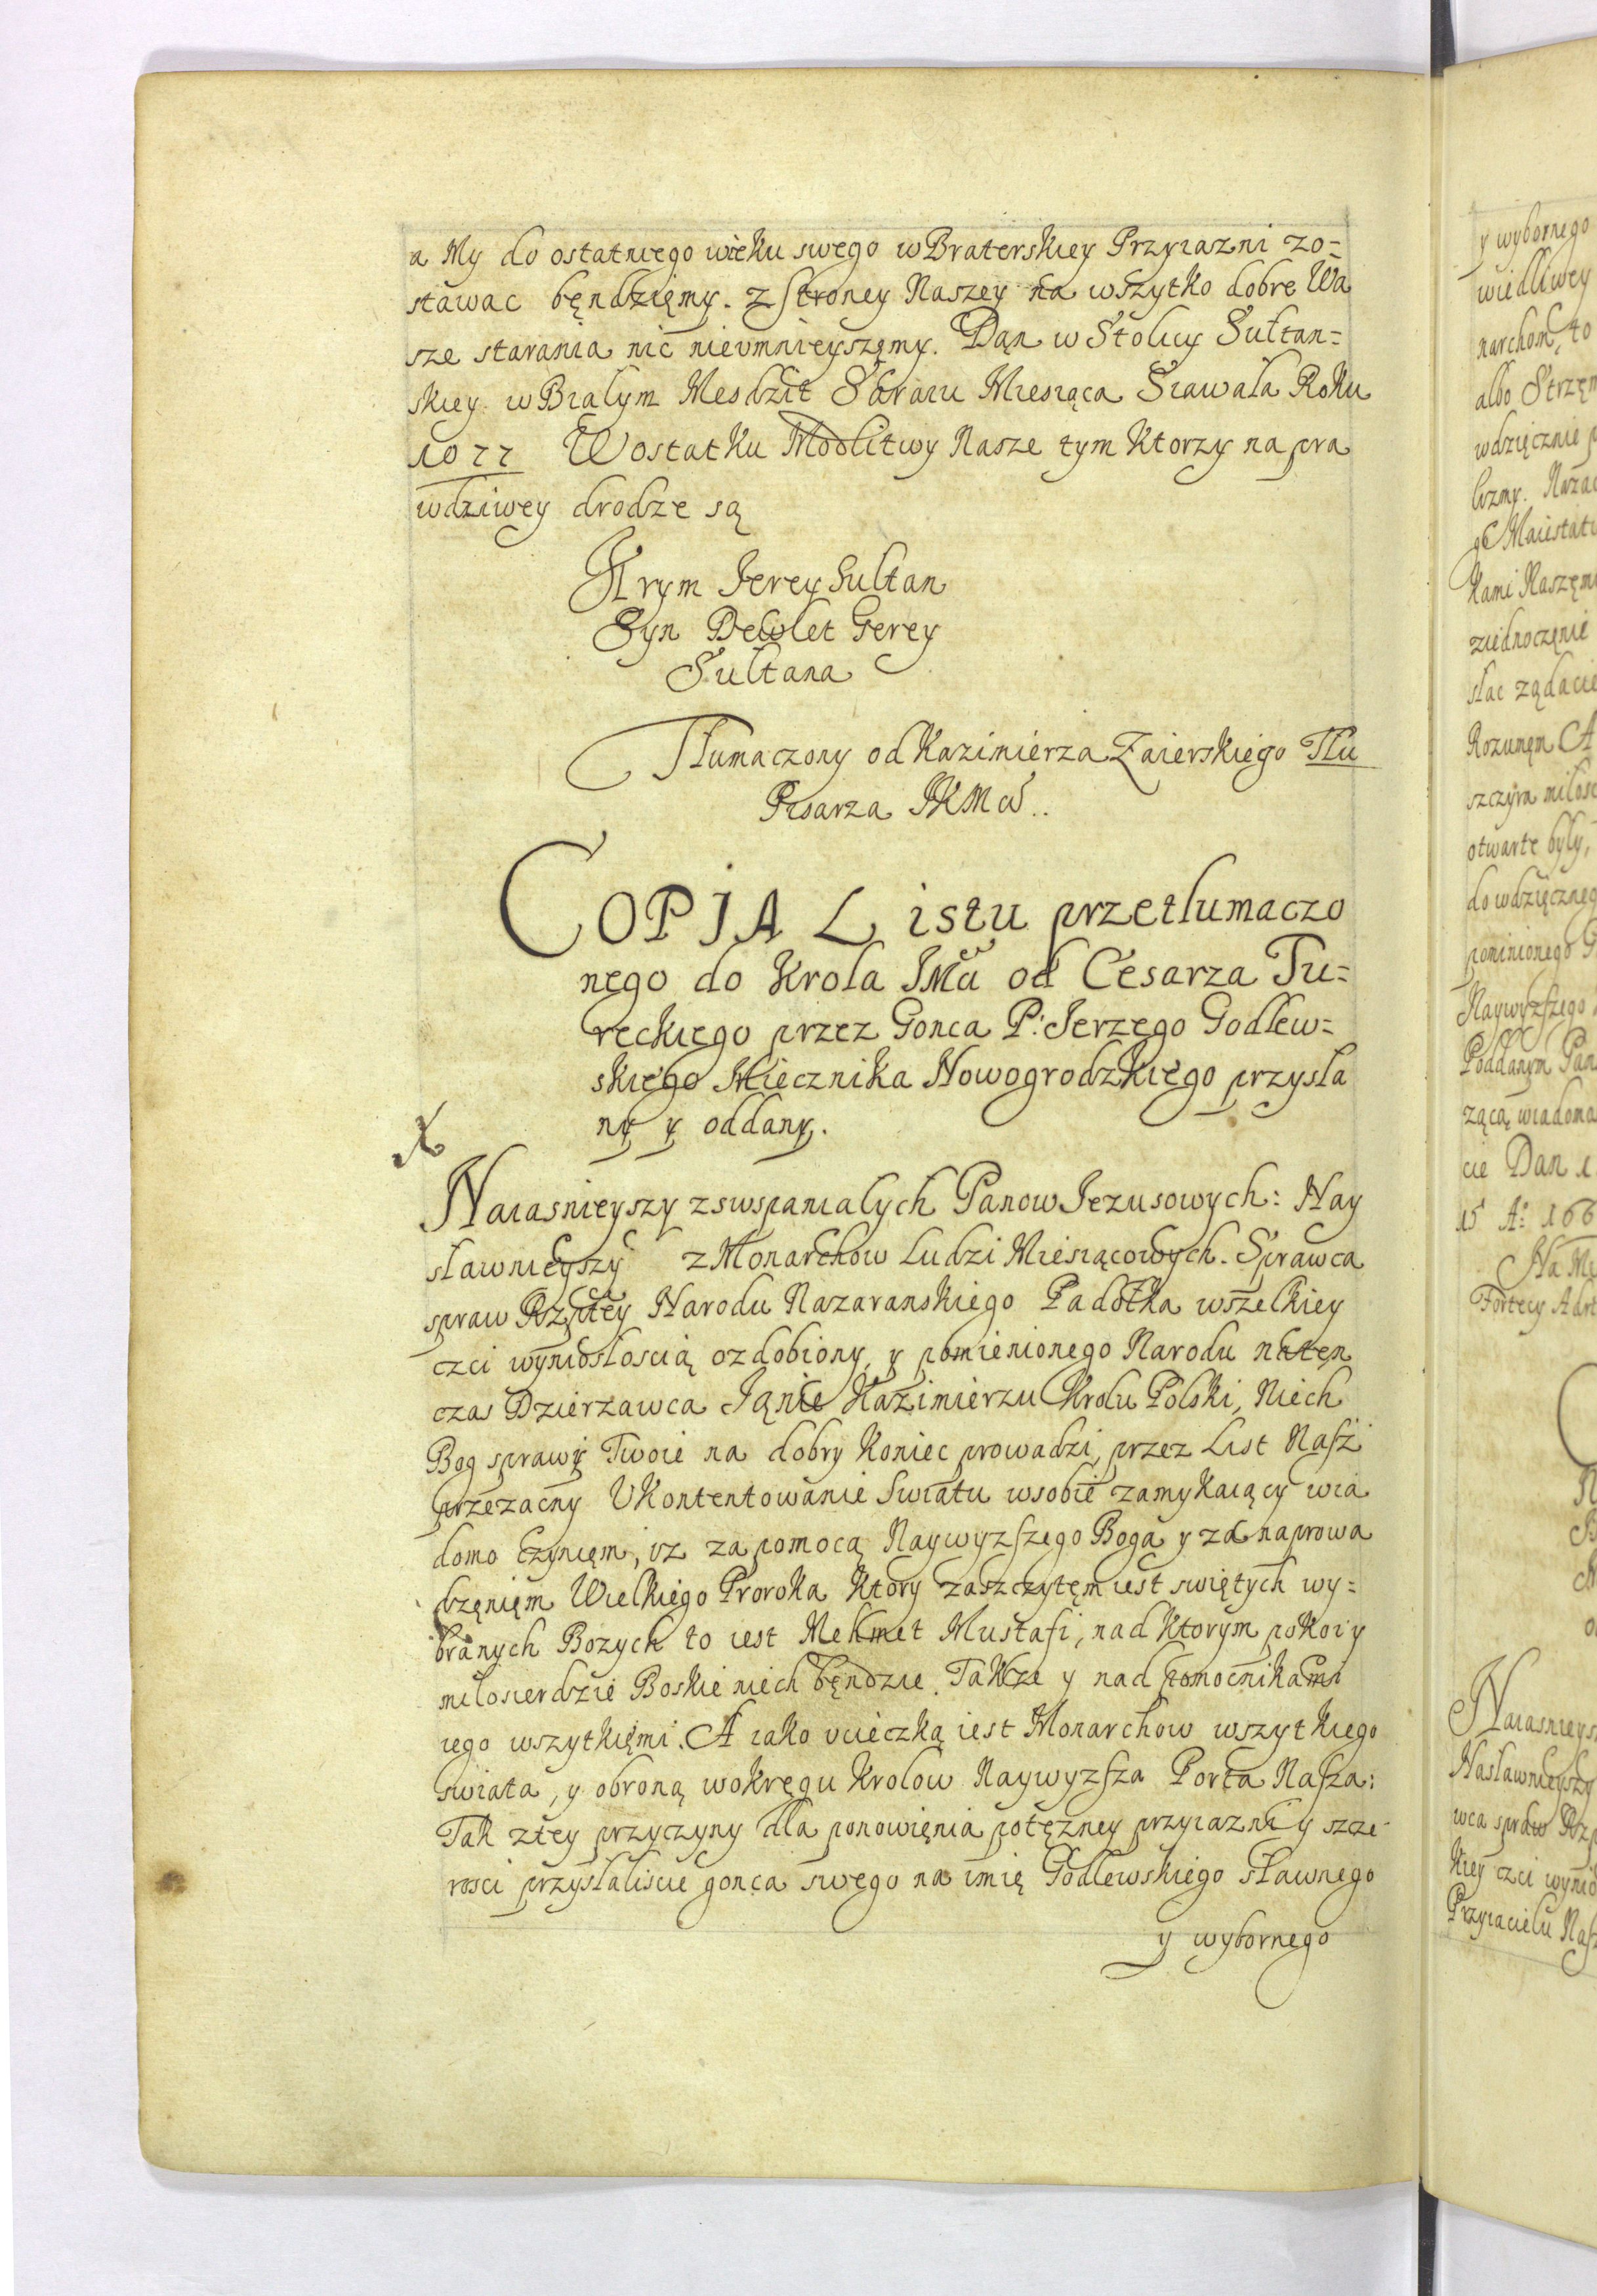 a My do ostatniego wieku swego w Braterskiey Przyiazni zo=
stawac będziemy. z stroney Naszey na wszytko dobre Wa
sze starania nic nieumnieyszęmy. Dan w Stolicy Sultan=
skiey w Bialym Mesdzit Saraiu Miesiąca Siawala Roku
1077 W ostatku Modlitwy Nasze tym ktorzy na pra
wdziwey drodze są
Krym Jerey Sultan
Syn Dewlet Gerey
Sultana
Tlumaczony od Kazimierza Zaierskiego Tlu
Pisarza JKMci..
COPIA Listu przetlumaczo
nego do Krola JMci od Cesarza Tu=
reckiego przez Gonca P: Jerzego Godlew=
skiego Miecznika Nowogrodzkiego przysla
ny y oddany.
Naiasnieyszy z swspanialych Panow Jezusowych: Nay
slawnieyszy z Monarchow Ludzi Miesiącowych. Sprawca
spraw Rzptey Narodu Nazaranskiego Padolka wszelkiey
czci wyniosloscią ozdobiony, y pomienionego Narodu naten
czas Dzierzawca Janie Kazimierzu Krolu Polski, Niech
Bog sprawy Twoie na dobry koniec prowadzi, przez List Nasz
przezacny Ukontentowanie Swiatu w sobie zamykaiący wia
domo czyniem, iz za pomocą Naywyzszego Boga y za naprowa
dzęnięm Wielkiego Proroka ktory zaszczytęm iest swiętych wy=
branych Bozych to iest Mehmet Mustafi, nad ktorym pokoi y
milosierdzie Boskie niech będzie. Takze y nad pomocnikami
iego wszytkięmi. A iako ucieczką iest Monarchow wszytkiego
swiata, y obroną w okręgu Krolow Naywyzsza Porta Nasza:
Tak z tey przyczyny dla ponowięnia potęzney przyiazni y szcze
rosci przyslaliscie gonca swego na imię Godlewskiego slawnego
y wybornego
y wybornego
wiedliwey
narchom, to
albo Strzęm
wdzięcznie p
lozmy. Nazac
go Maiestatu
kami Naszęmi
ziednoczęnie
slac ządacie
Rozumęm A
szczyra milosc
otwarte byly,
do wdzięcznego
pominionego G
Naywyzszego
Poddanym Pan
ząca, wiadoma
cie Dan
15 A: 166
Na Mi
Fortecy Adri
Naiasnieys
Naslawnieyszy
wca spraw Rzp
kiey czci wynio
Przyiacielu Nasz